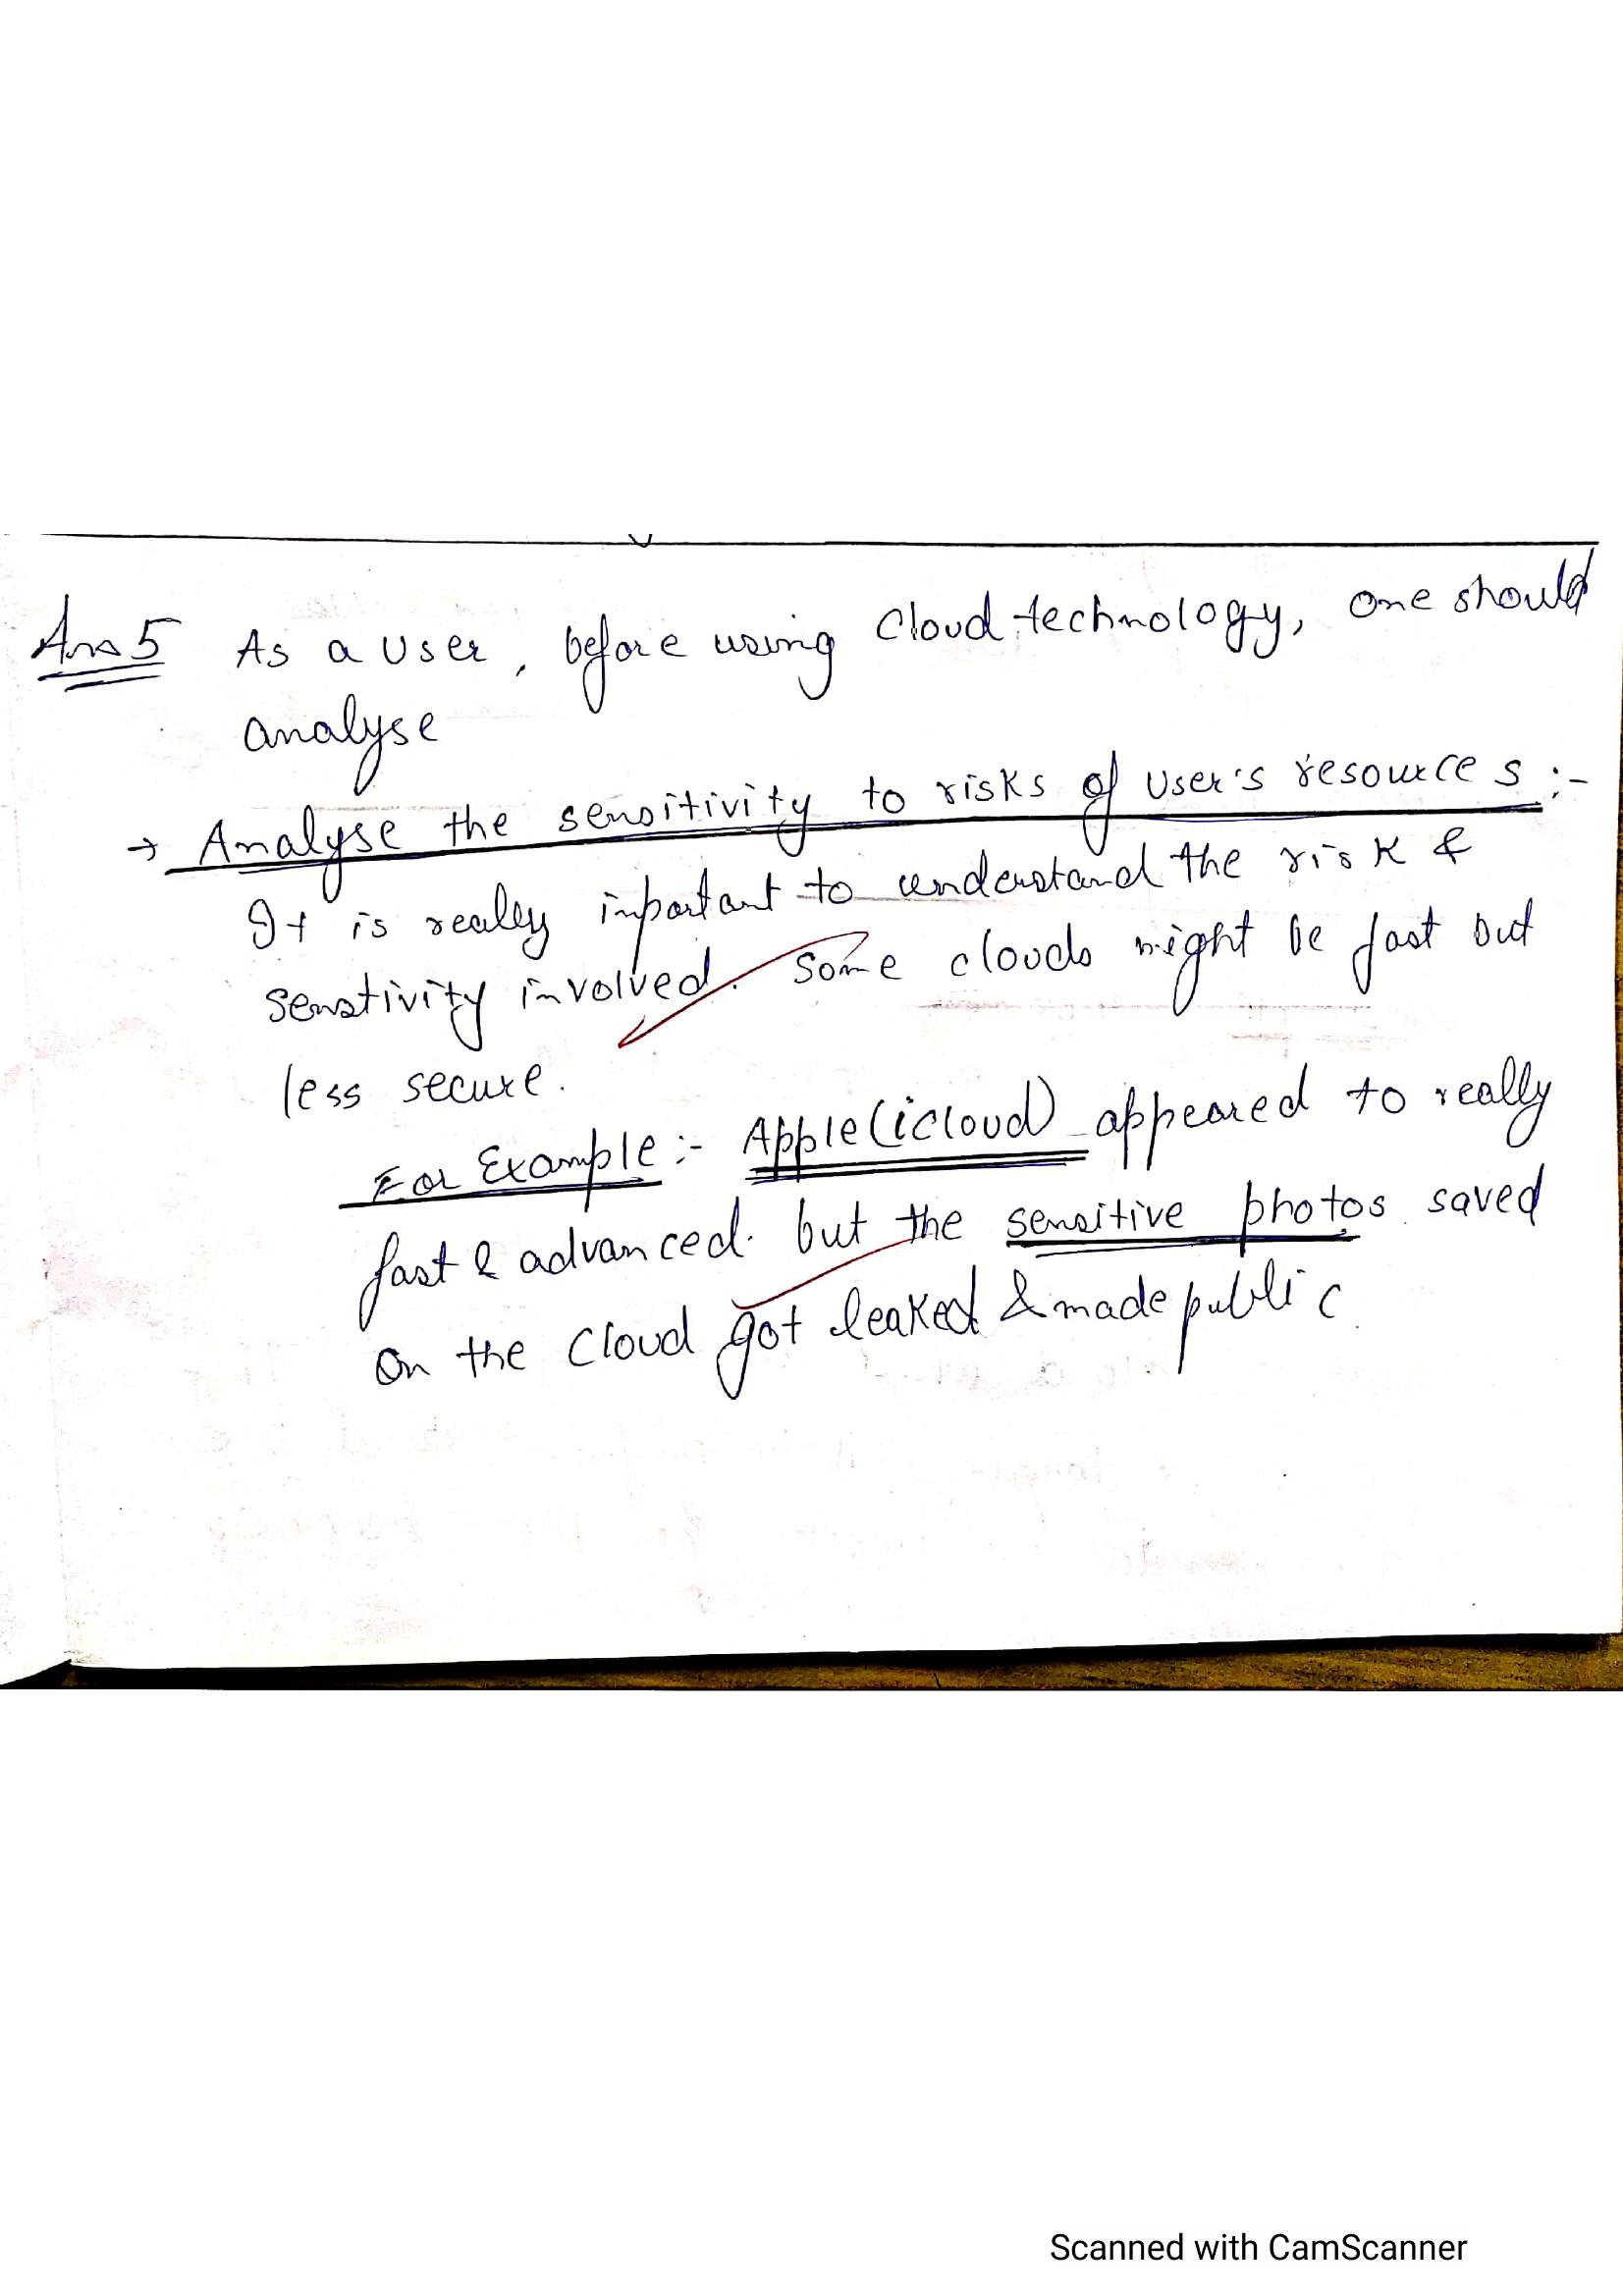 Ans 5 As a user, before using cloud technology, one should
analyse
→ Analyse the sensitivity to risks of user's resources :-
It is really inportant to understand the risk &
senstivity involved. Some clouds might be fast but
less secure.
For Example :- Apple (icloud) appeared to really
fast & advanced. but the sensitive photos saved
on the cloud got leaked & made public.
Scanned with CamScanner